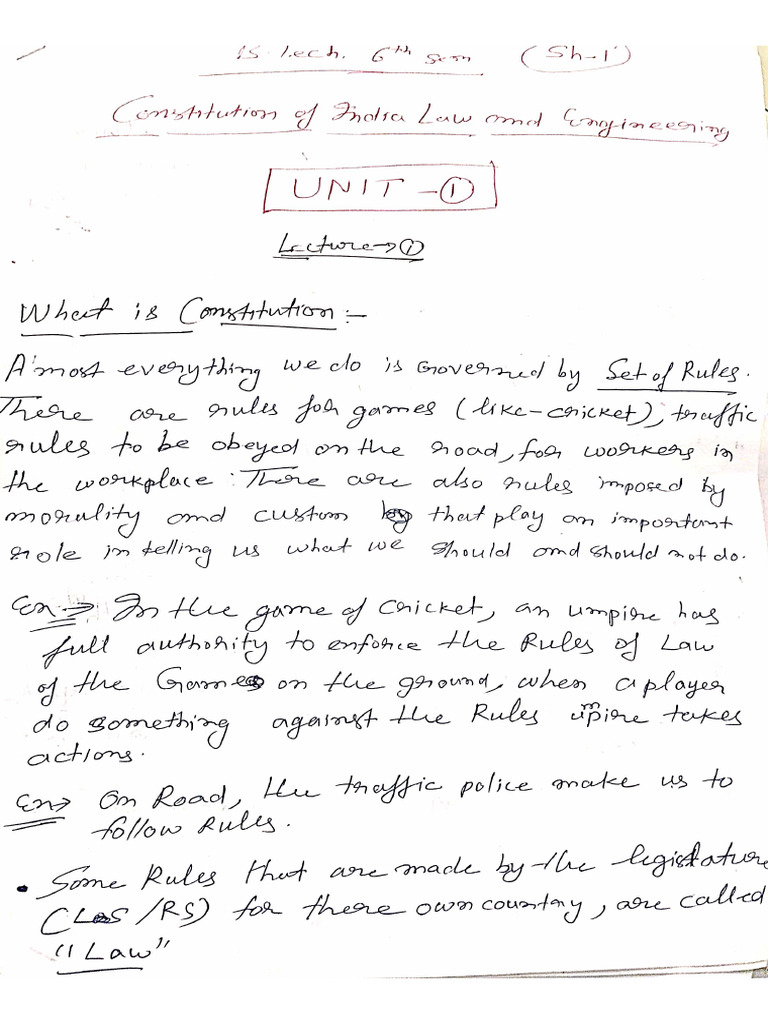 B.Tech. 6th Sem (Sh-1)
Constitution of India Law and Engineering
UNIT - ①
Lecture→①
What is Constitution:-
Almost everything we do is Governed by Set of Rules.
There are rules for games (like-cricket), traffic
rules to be obeyed on the road, for workers in
the workplace. There are also rules imposed by
morality and custom that play an important
role in telling us what we should and should not do.
Ex→ In the game of cricket, an umpire has
full authority to enforce the Rules of Law
of the Games on the ground, when a player
do something against the Rules umpire takes
actions.
Ex→ On Road, the traffic police make us to
follow Rules.
• Some Rules that are made by the legislature
(LS/RS) for there own country, are called
"Law"